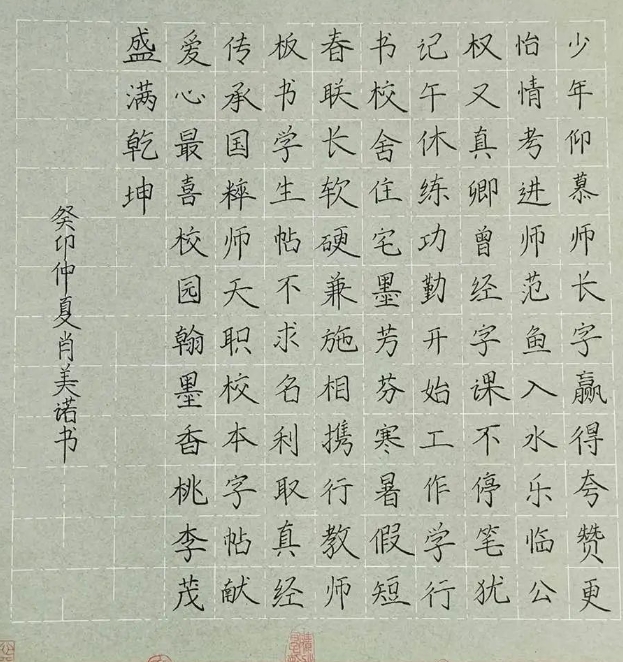 少年仰慕师长字赢得夸赞更
怡情考进师范鱼入水乐临公
权又真卿曾经字课不停笔犹
记午休练功勤开始工作学行
书校舍住宅墨芳芬寒暑假短
春联长软硬兼施相携行教师
板书学生帖不求名利取真经
传承国粹师天职校本字帖献
爱心最喜校园翰墨香桃李茂
盛满乾坤
癸卯仲夏肖美诺书